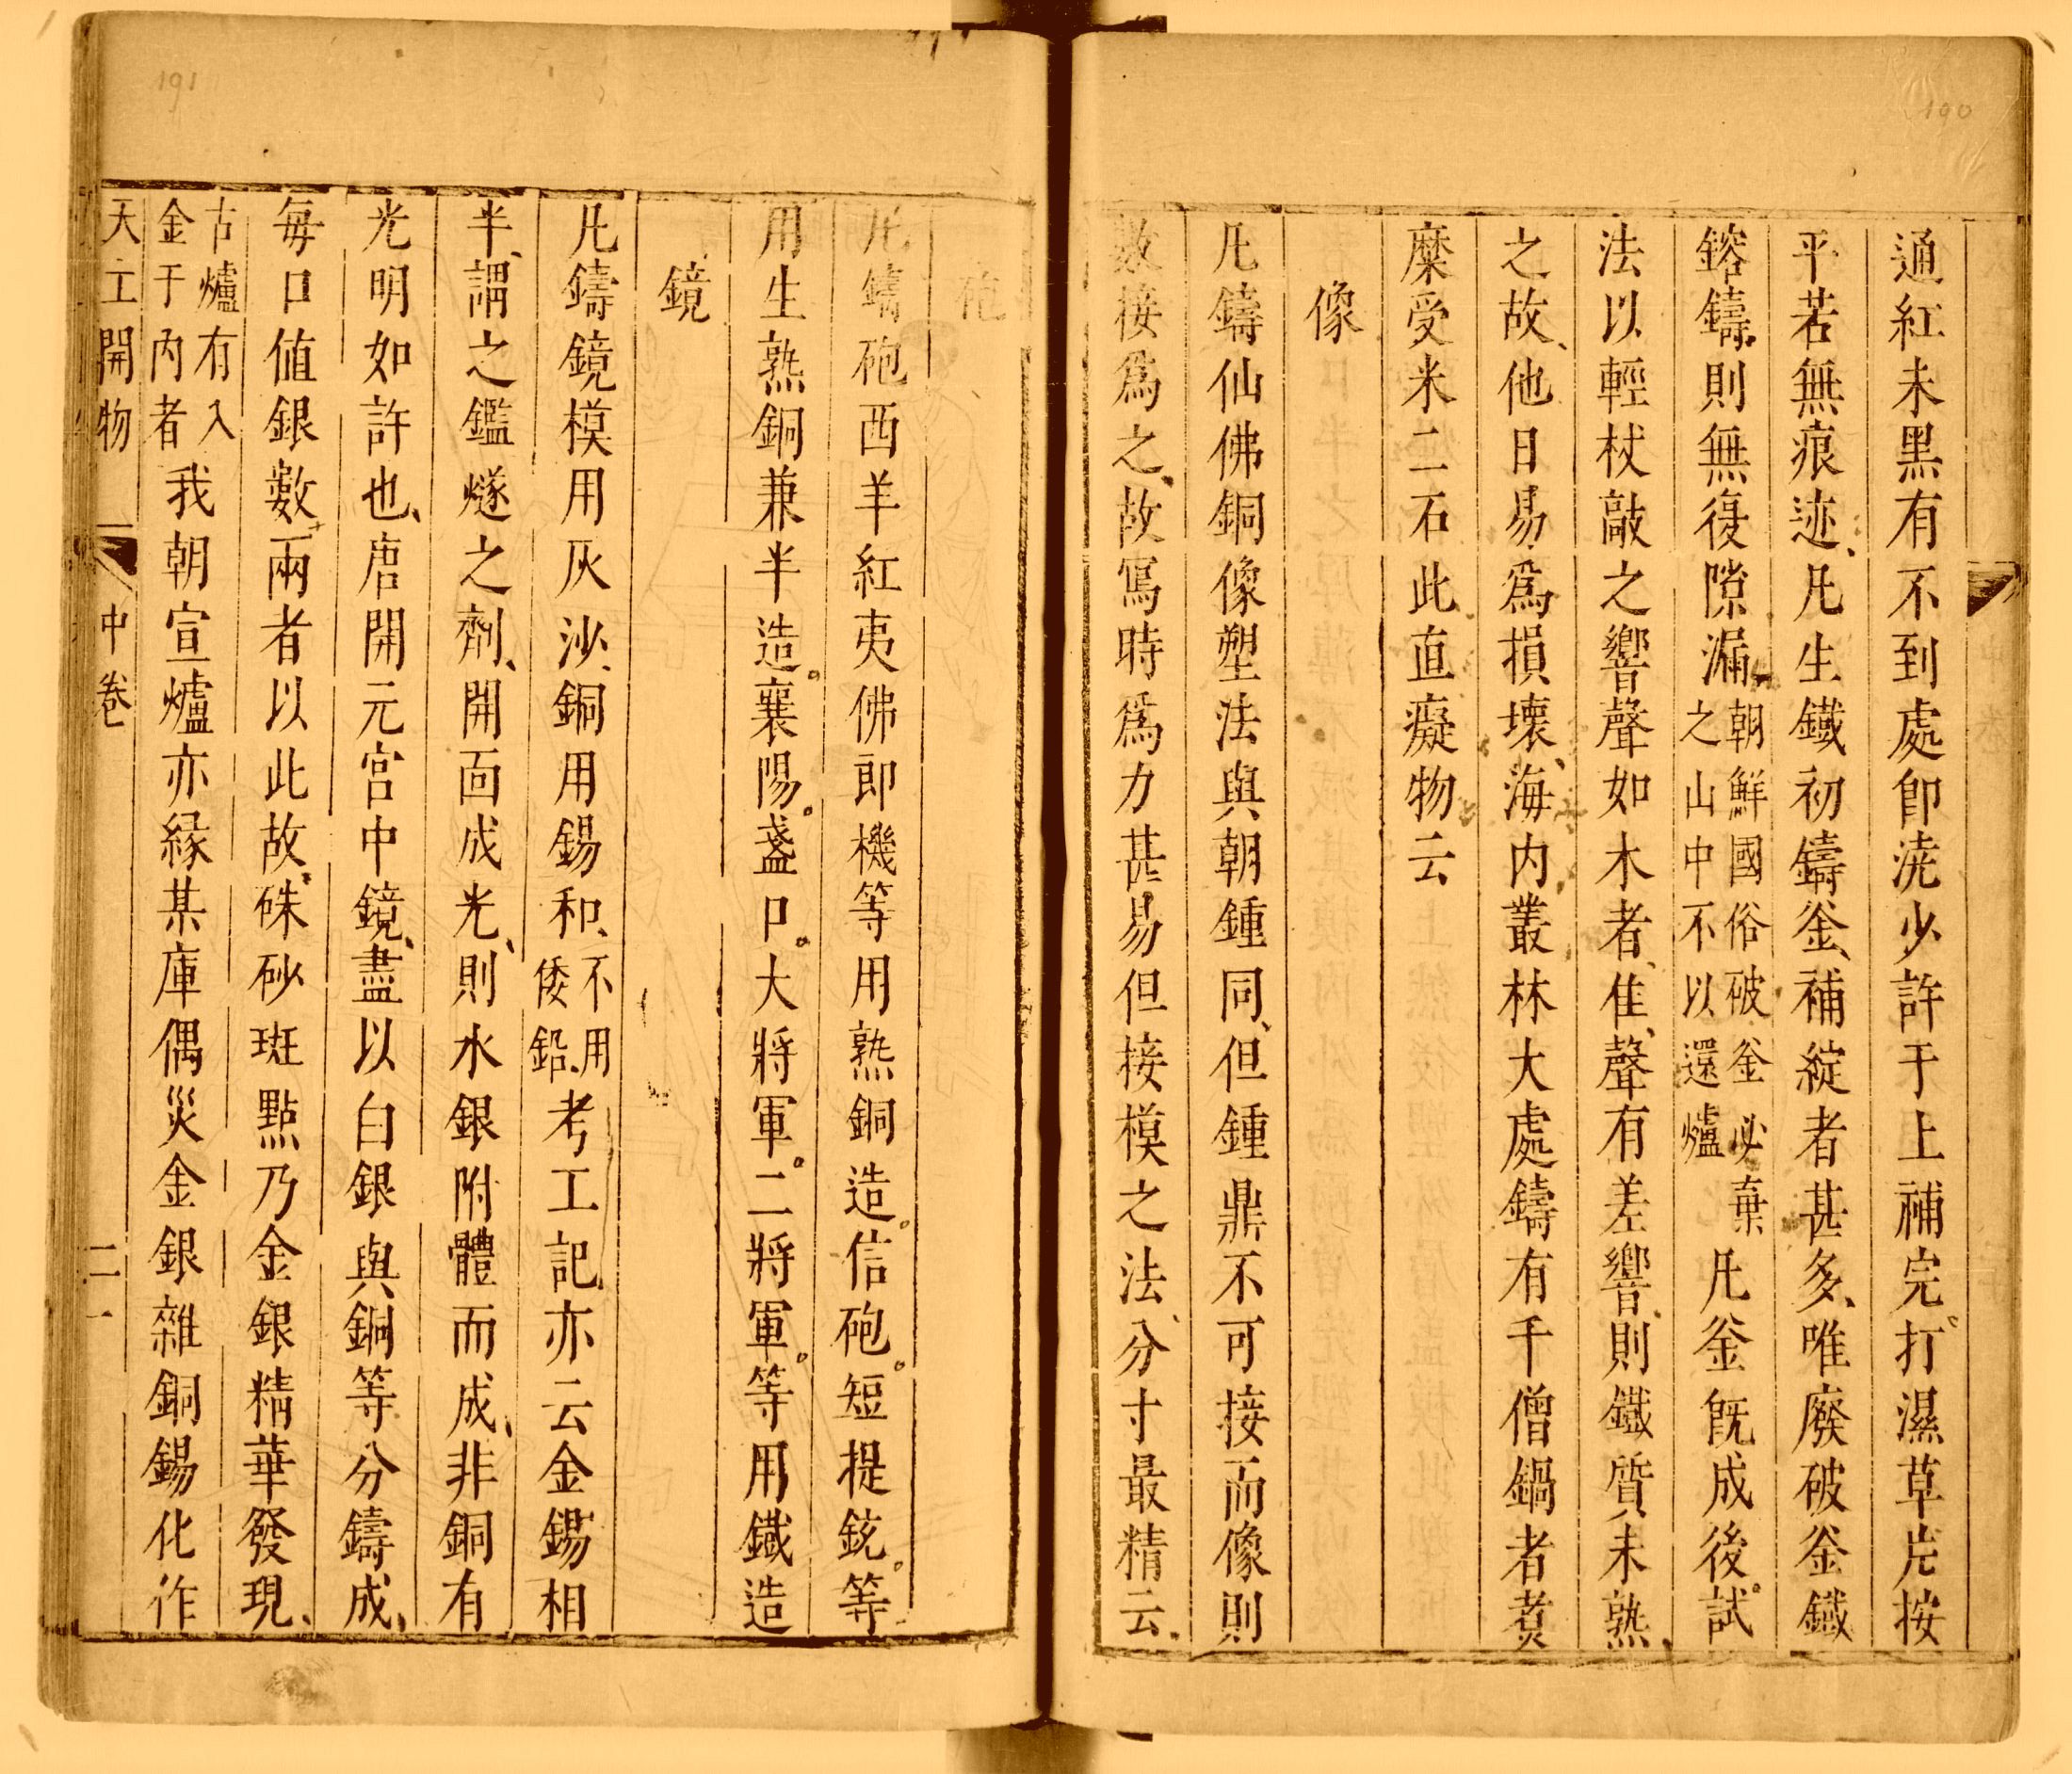 190
通紅未黑有不到處卽澆少許于上補完。打濕草片按
平若無痕迹、凡生鐵初鑄釜、補綻者甚多、唯廢破釜鐵
鎔鑄、則無復隙漏、朝鮮國俗破釜必棄之山中不以還爐凡釜旣成後。試
法以輕杖敲之響聲如木者、佳、聲有差響、則鐵質未熟、
之故、他日易爲損壞、海内叢林大處鑄有千僧鍋者煮
糜受米二石此直癡物云
像
凡鑄仙佛銅像塑法與朝鍾同、但鍾鼎不可接而像則
數接爲之、故寫時爲力甚易但接模之法、分寸最精云、
191
砲
凡鑄砲西羊紅夷佛郎機等用熟銅造。信砲。短提銃。等
用生熟銅兼半造。襄陽。盞口。大將軍。二將軍。等用鐵造
鏡
凡鑄鏡模用灰沙、銅用錫和、不用倭鉛、考工記、亦云金錫相
半、謂之鑑燧之劑、開面成光、則水銀附體而成、非銅有
光明如許也、唐開元宮中鏡、盡以白銀與銅等分鑄成、
每口値銀數兩者以此故、硃砂斑點乃金銀精華發現、
古爐有入金于内者我朝宣爐亦緣某庫偶災金銀雜銅錫化作
天工開物 中卷 二一